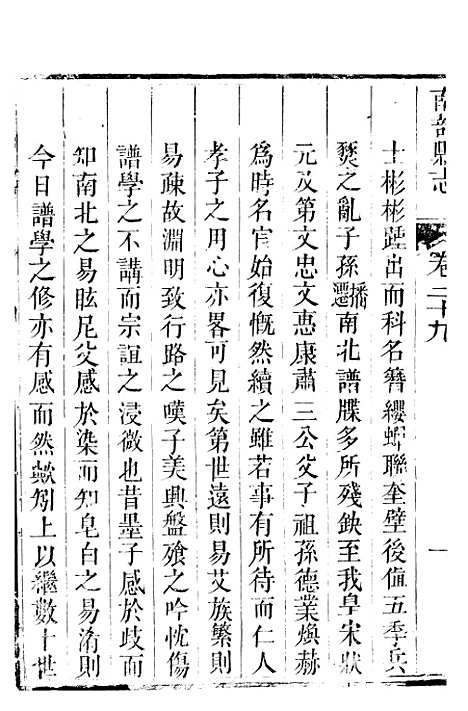 南部縣志 卷二十九 一
士彬彬踵出而科名簪纓蟬聯奎壁後僃五季兵
燹之亂子孫播遷南北譜牒多所殘鈌至我皇宋狀
元及第文忠文惠康肅三公父子祖孫德業煥赫
爲時名宦始復慨然續之雖若事有所待而仁人
孝子之用心亦畧可見矣第世遠則易艾族繁則
易疎故淵明致行路之嘆子美興盤飱之吟忱傷
譜學之不講而宗誼之浸微也昔墨子感於歧而
知南北之易眩尼父感於染而知皂白之易淆則
今日譜學之修亦有感而然歟矧上以繼數十世